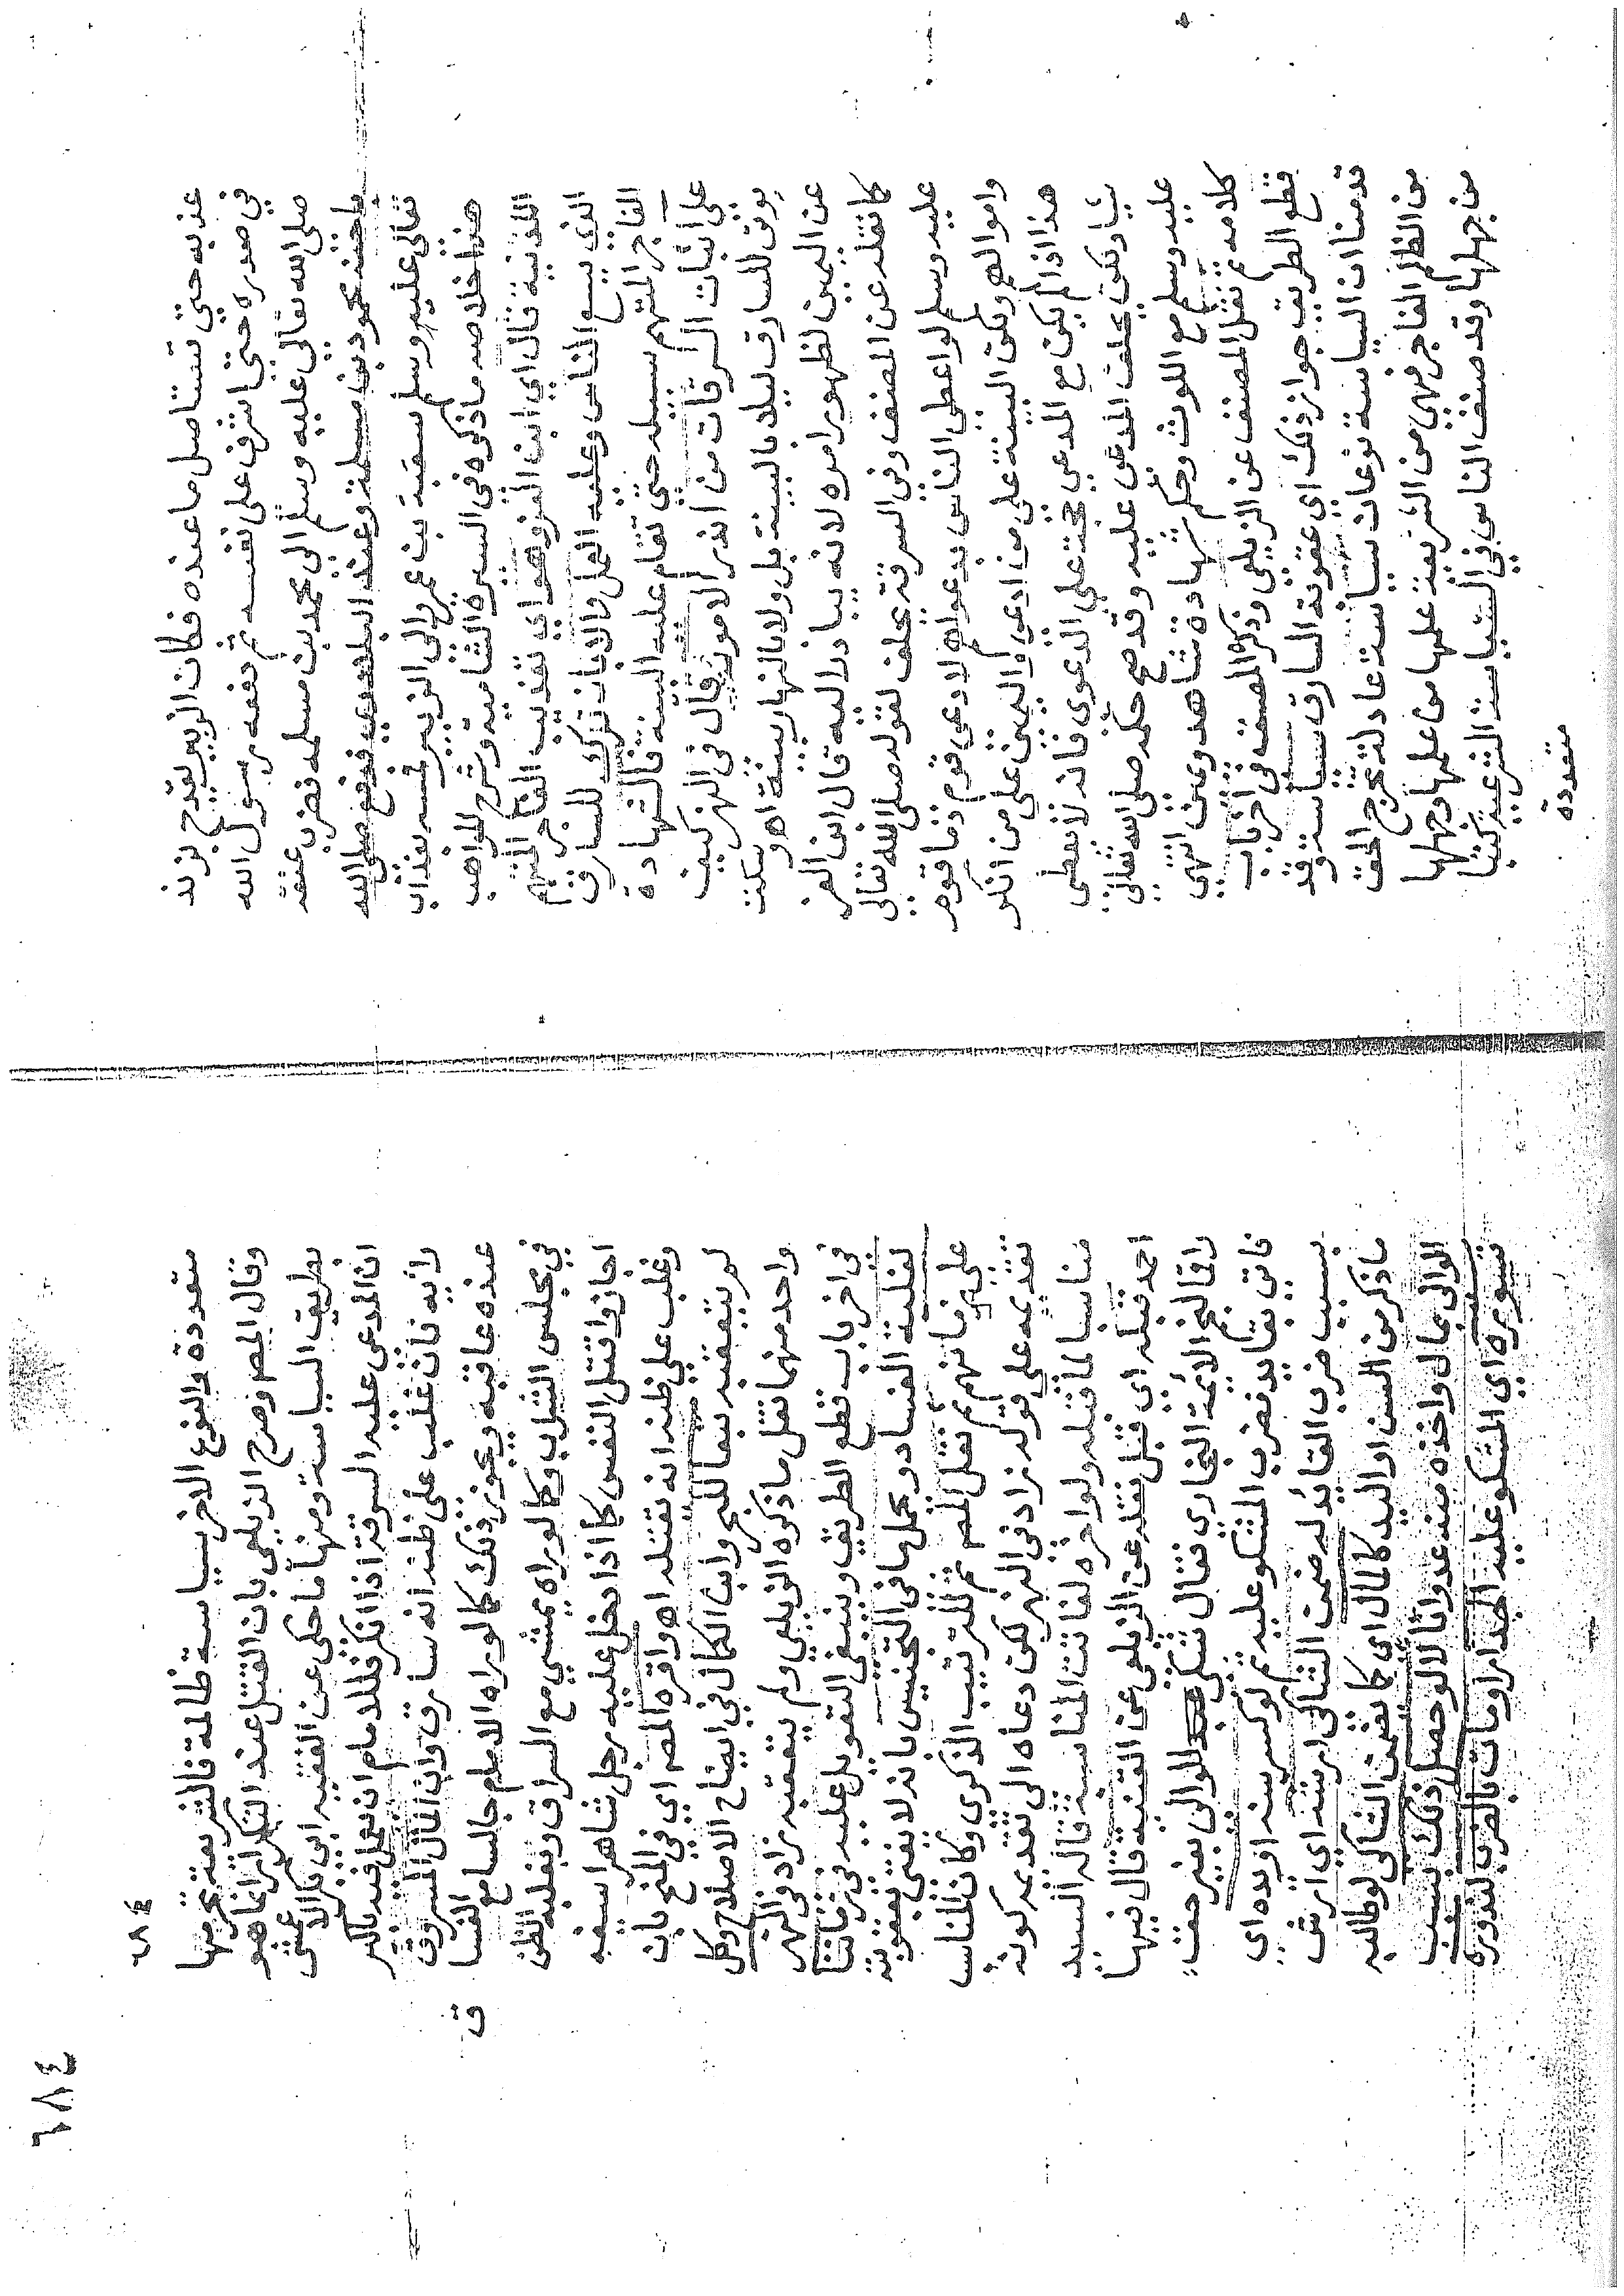 عذبه حتى تستاصل ما عنده فكان الزبير يقدح بزند
في صدره حتى اشرف على نفسه ثم دفعه رسول الله
صلى الله تعالى عليه وسلم الى محمد بن مسلمه فضرب عنقه
باخيه محمود بن مسلمة وعند البلاذري فدفع صلى الله
تعالى عليه وسلم سفيه بن عمرو الى الزبير يمسه بعذاب
هذا خلاصه ما ذكره في السيرة الشامية وشرح المواهب
اللدنية قال اي ابن الغز وهو اي تعذيب الفاجر المتهم
الذي يسع الناس وعليه العمل والا فان ترك للسارق
الفاجر المتهم سبيله حتى تقام عليه البينة فالشهادة
على اثبات السرقات من اندر الامور وقال في النهر كيف
يوتى للسارق ليلا بالبينة بل ولا بالنهار بينة اهـ وسكت
عن اليمين لظهور امره لانه يبادر اليه قال ابن الغر
كما نقله عن المصنف وفي السرقة يحلف لقوله صلى الله تعالى
عليه وسلم لو اعطى الناس بدعواهم لادعى قوم دما قوم
واموالهم ولكن البينة على من ادعى واليمين على من انكر
هذا اذا لم يكن مع المدعي حجة على الدعوى فانه لا يعطى
شيا ولكن يحلف المدعى عليه وقد صح حكمه صلى الله تعالى
عليه وسلم مع اللوث وحكم شهادة شاهد ويمين انتهى
كلامه ثم نقل المصنف عن الزيلعي وذكره المصنف في اخر باب
قطع الطريق جواز ذلك اي عقوبة السارق سياسة وقد
قدمنا ان السياسة نوعان سياسة عادلة تخرج الحق
من الظالم الفاجر فهي من الشريعة علمها من علمها وجهلها
من جهلها وقد صنف الناس في السياسة الشرعية كتبا
متعددة
٤٨٦
متعددة والنوع الاخر سياسة ظالمة فالشريعة تحرمها
وقال المص وصرح الزيلعي بان القتل عند التكرار انما هو
بطريق السياسة ومنها ما حكى عن الفقيه ابي بكر الاعمش
ان المدعى عليه السرقة اذا انكر فللامام ان يعمل فيه باكبر
رأيه فان غلب على ظنه انه سارق وان المال المسروق
عنده عاقبه ويجوز ذلك كما لو راه الامام جالسا مع الفساق
في مجلس الشرب وكما لو راه يمشي مع السراق وبغلبه الظن
اجازوا قتل النفس كما اذا دخل عليه رجل شاهرا سيفه
وغلب على ظنه انه يقتله اهـ واقره المص اي في المنح بان
لم يتعقبه تبعا للبحر وابن الكمال في ايضاح الاصلاح وكل
واحد منهما نقل ما ذكره الزيلعي ولم يتعقبه زاد في النهر
في اخر باب قطع الطريق وينبغي التعويل عليه في زماننا
لغلبة الفساد ويحمل ما في التجنيس بانه لا يفتى بعقوبة
على زمانهم ثم نقل المص ثم للترتيب الذكري وكان المناسب
تقديمه على قوله زاد في النهر لكن دعاه الى تقديمه كونه
مناسبا لما قبله ولو اخره لفاتت المناسبة قاله السيد
احمد قبله اي قبل نقله عن الزيلعي عن القنية قال فيها
راقا لنجم الائمة البخاري فقال شكى للوالي بغير حق
فاتى بقايد فضرب المشكو عليه ثم لو كسر سنه او يده اي
بسبب ضرب القايد له ضمن الشاكي ارشه اي ارش
ما ذكر من السن او اليد كالمال اي كما يضمن الشاكي لو طالبه
الوالي بمال واخذه منه عدوانا لا لو حصل ذلك بسبب
تسوره اي المشكو عليه الجدار او مات بالضرب لندوره